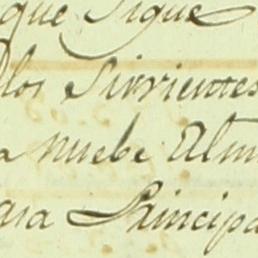 que Sigue
los Sirvientes
a nuebe Alm
ara Principa